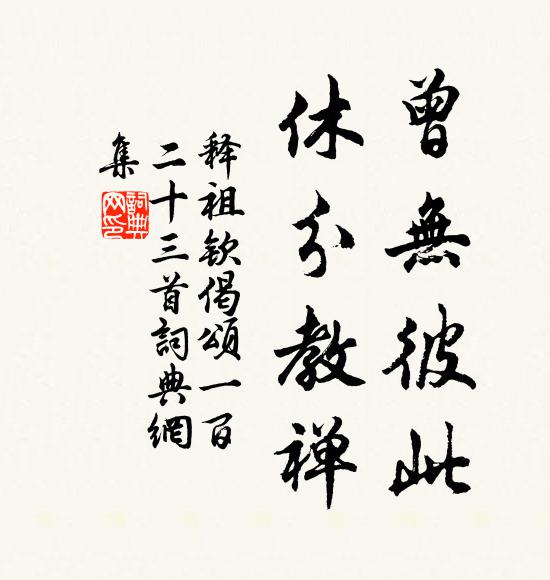 曾無彼此
休分教禅
释祖钦偈頌一百
二十三首詞典網
集
詞典
网印